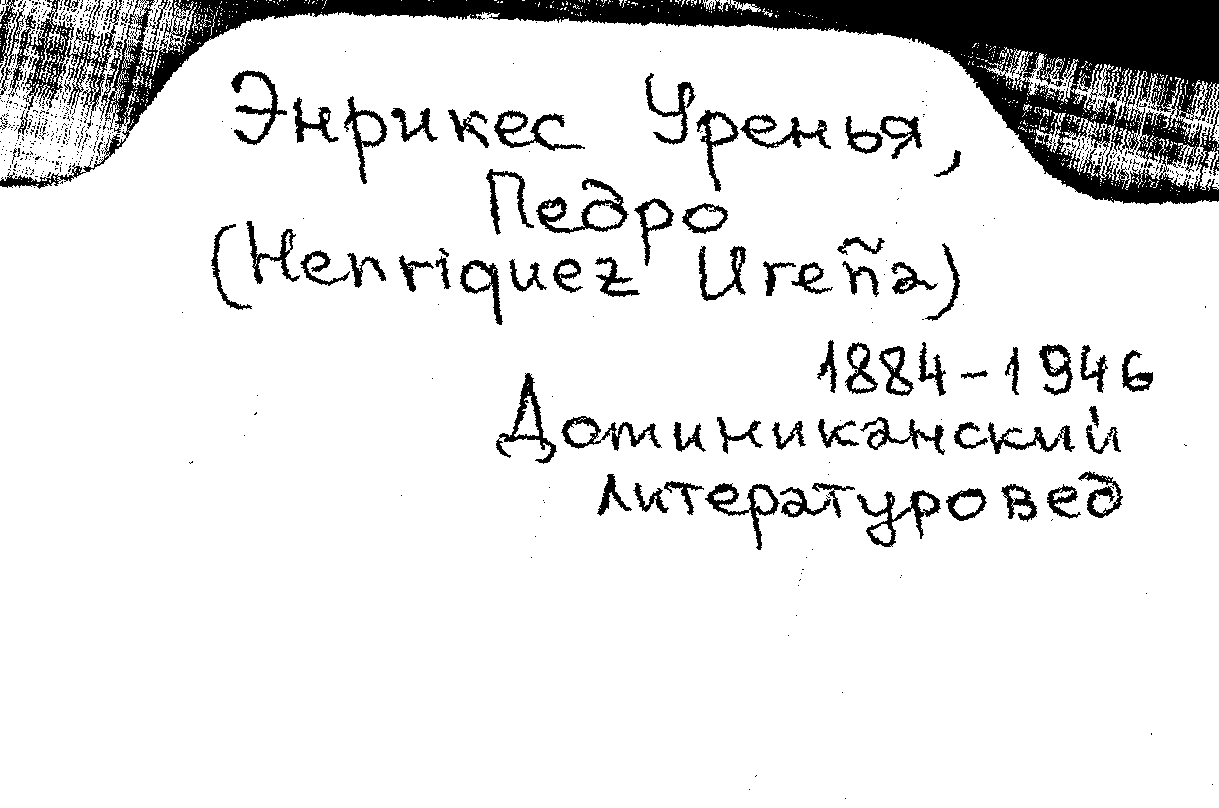 Энрикес Уренья,
Педро
(Henriquez Ureña)
1884-1946
Доминиканский
литературовед